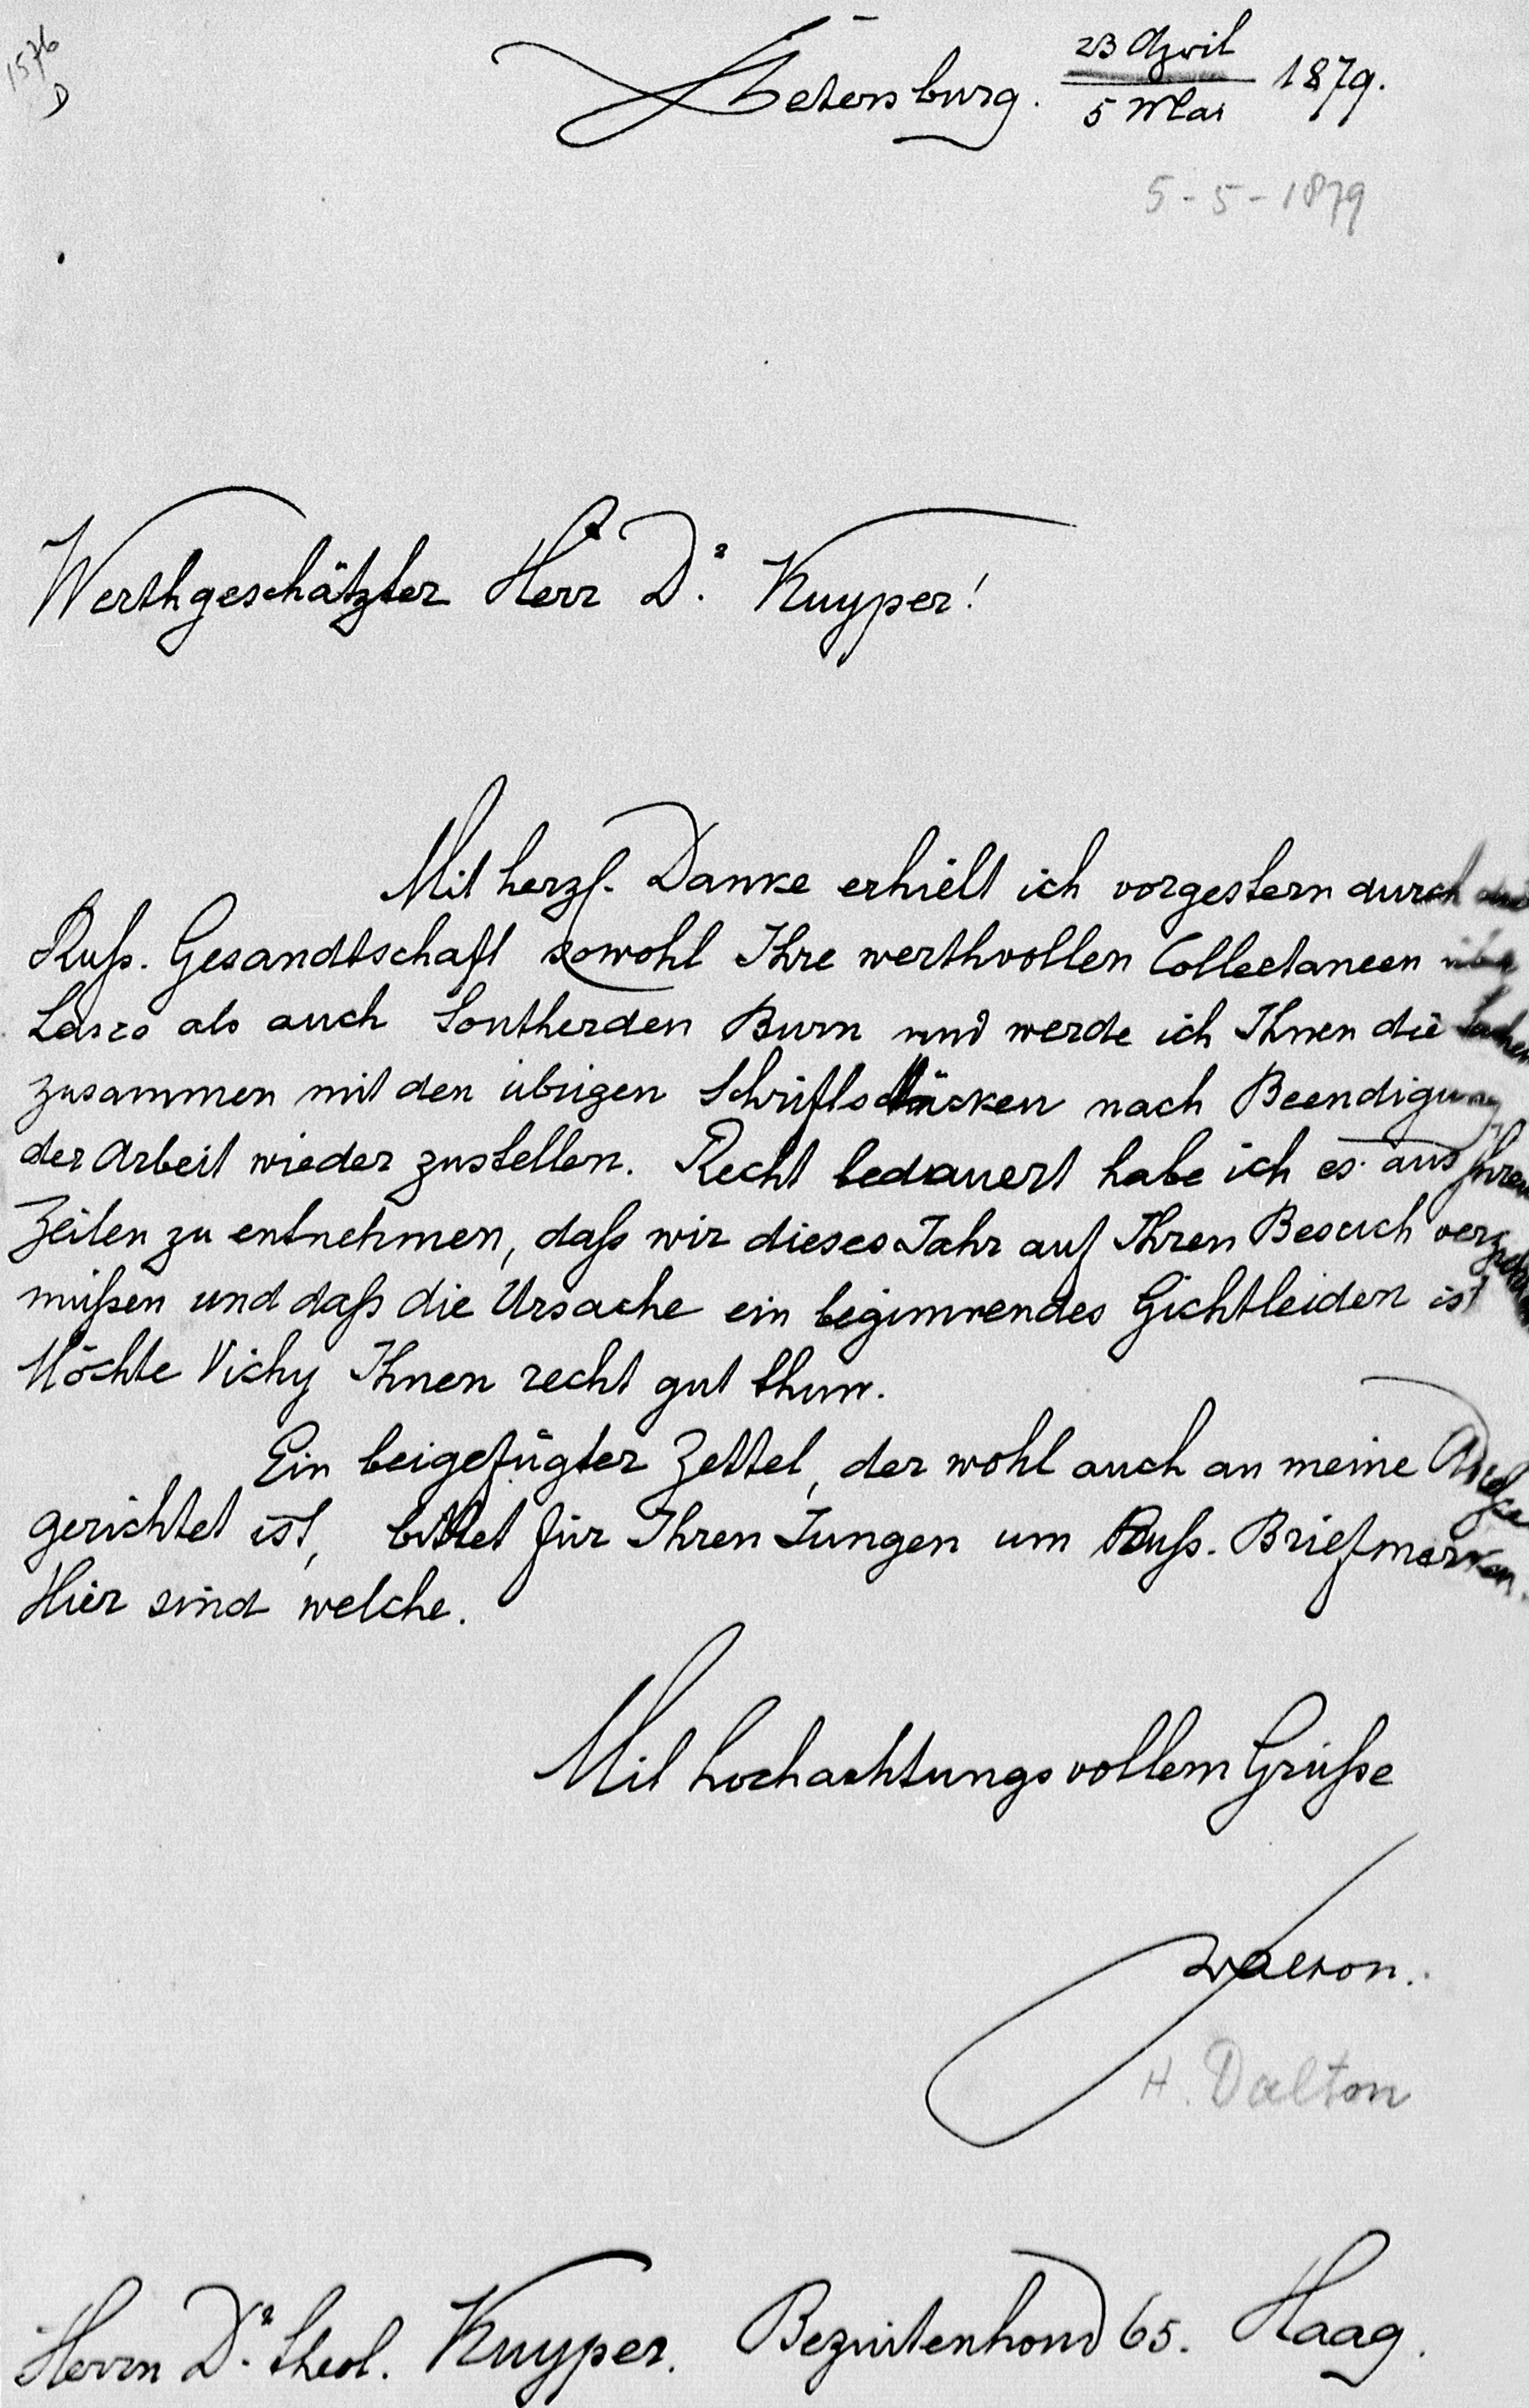 1576
D
Petersburg. 23 April / 5 Mai 1879.
5-5-1879
Werthgeschätzter Herr Dr. Kuyper!
Mit herzl. Danke erhielt ich vorgestern durch die
Ruß. Gesandtschaft sowohl Ihre werthvollen Collectaneen über
Lasco als auch Southerden Burn und werde ich Ihnen die Sachen
zusammen mit den übrigen Schriftstücken nach Beendigung
der Arbeit wieder zustellen. Recht bedauert habe ich es aus Ihren
Zeilen zu entnehmen, daß wir dieses Jahr auf Ihren Besuch
müßen und daß die Ursache ein beginnendes Gichtleiden ist
Möchte Vichy Ihnen recht gut thun.
Ein beigefügter Zettel, der wohl auch an meine
gerichtet ist, bittet für Ihren Jungen um Ruß. Briefmarken.
Hier sind welche.
Mit hochachtungsvollem Gruße
Dalton.
H. Dalton
Herrn Dr. theol. Kuyper. Bezuitenhout 65. Haag.